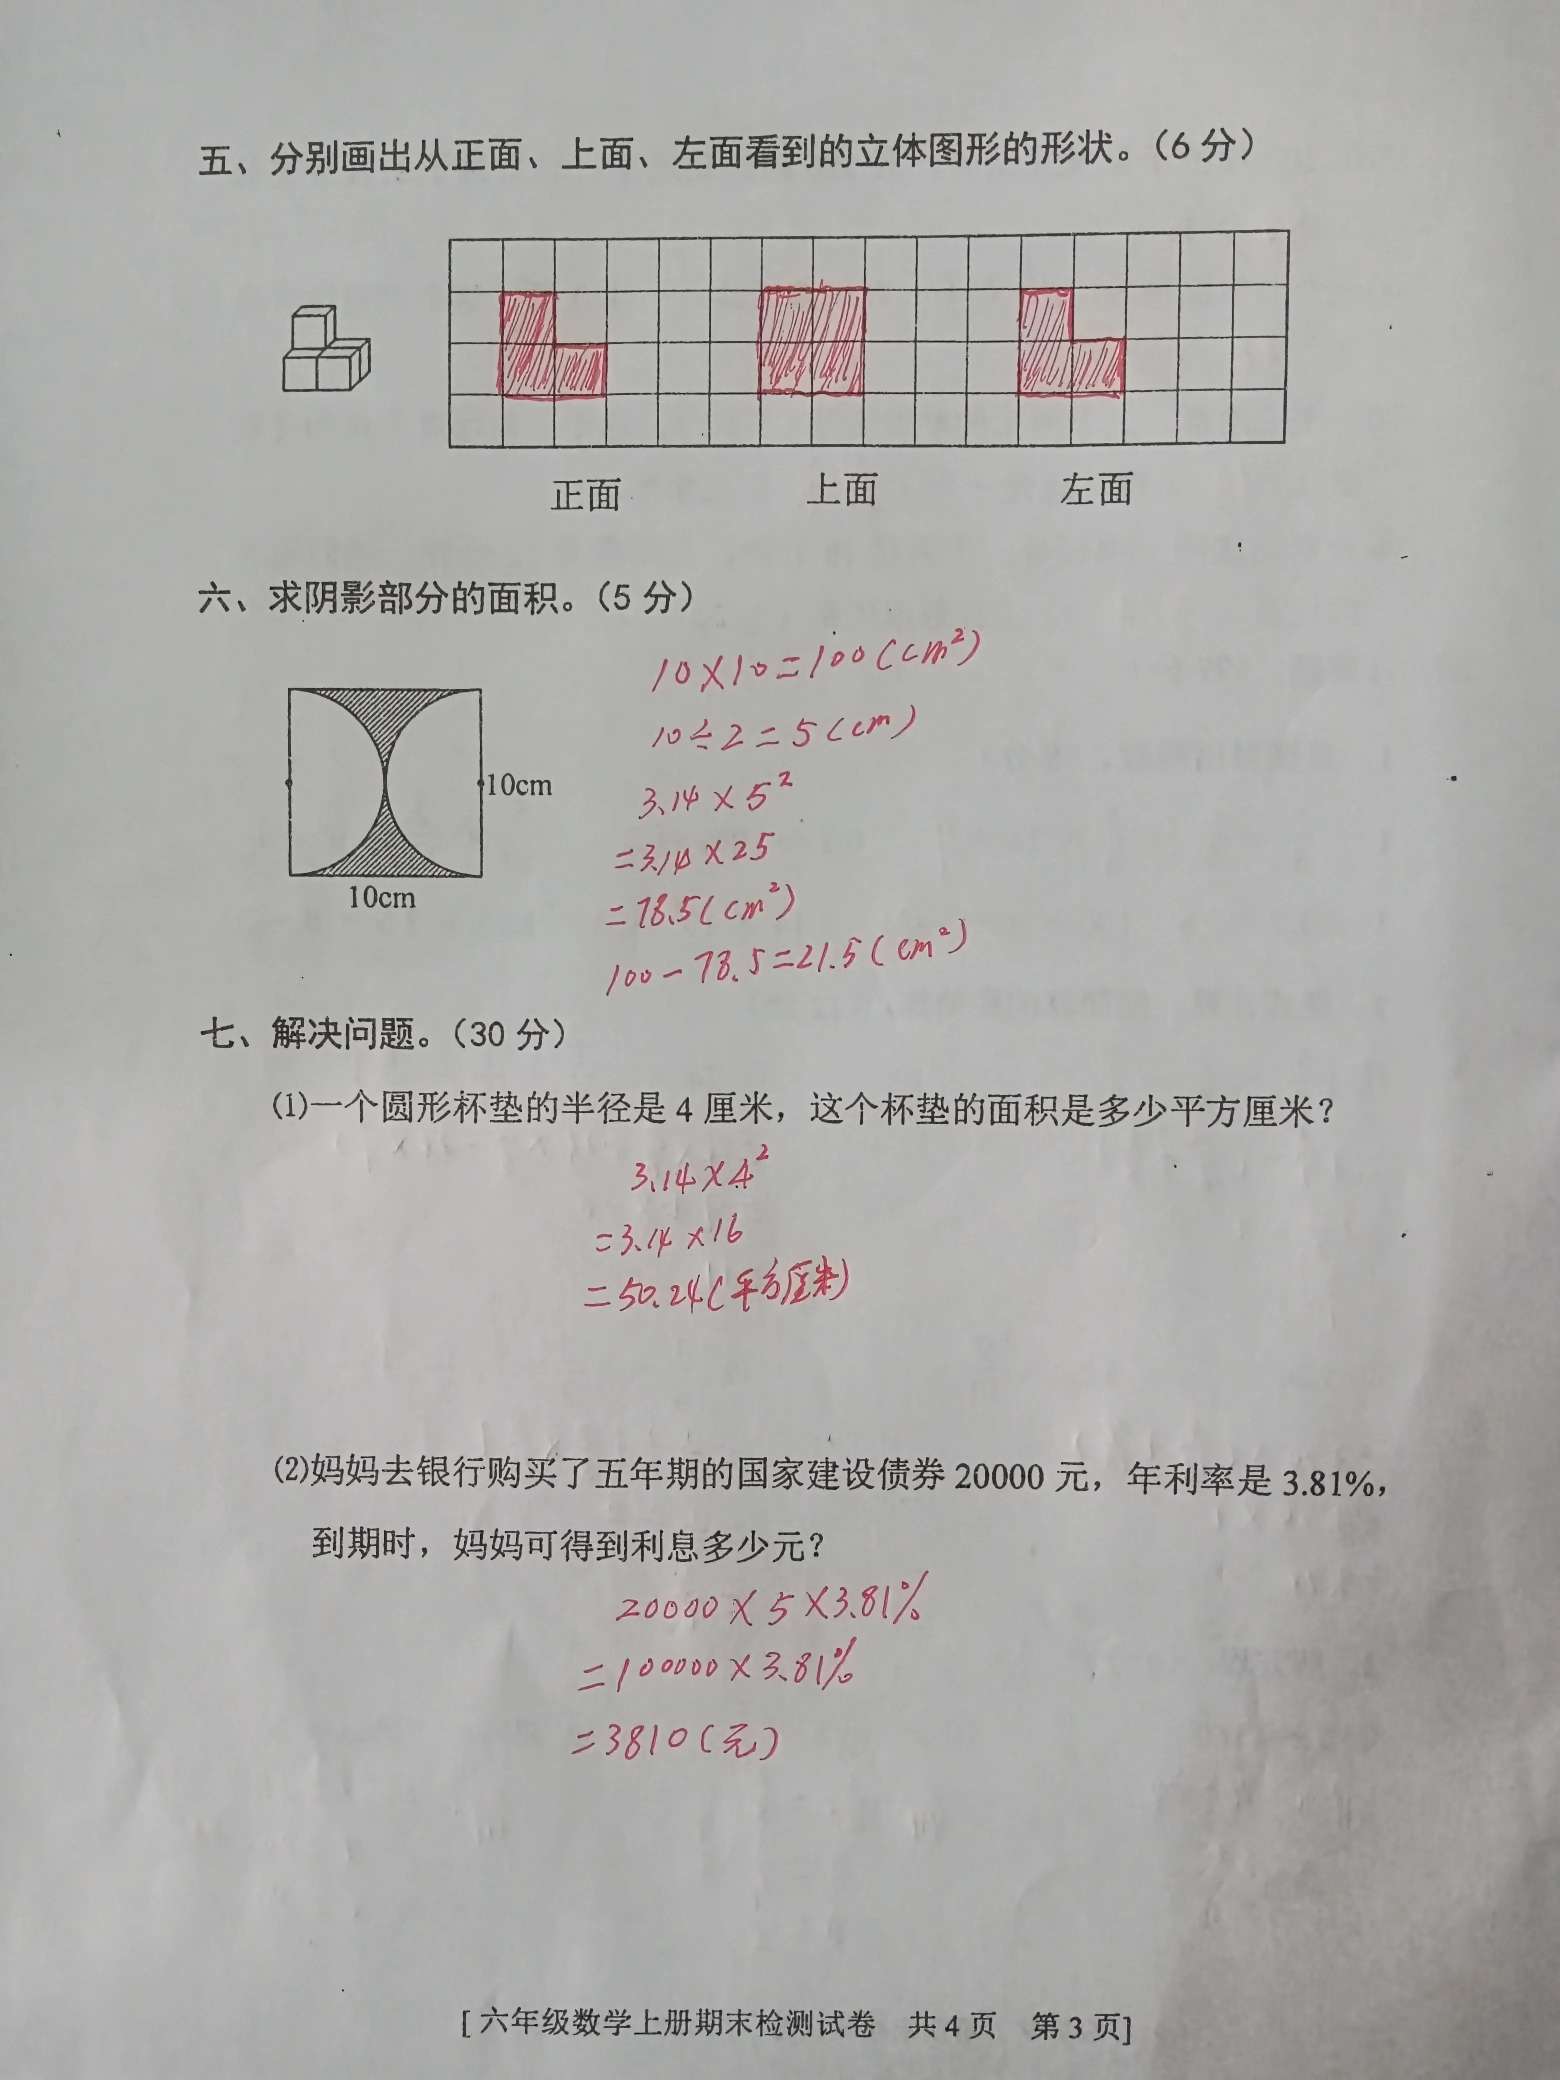 五、分别画出从正面、上面、左面看到的立体图形的形状。（6 分）
正面 上面 左面
六、求阴影部分的面积。（5 分）
10cm
10cm
10×10=100(cm²)
10÷2=5(cm)
3.14×5²
=3.14×25
=78.5(cm²)
100-78.5=21.5(cm²)
七、解决问题。（30 分）
⑴一个圆形杯垫的半径是 4 厘米，这个杯垫的面积是多少平方厘米？
3.14×4²
=3.14×16
=50.24(平方厘米)
⑵妈妈去银行购买了五年期的国家建设债券 20000 元，年利率是 3.81%，
到期时，妈妈可得到利息多少元？
20000×5×3.81%
=100000×3.81%
=3810(元)
[ 六年级数学上册期末检测试卷 共 4 页 第 3 页]